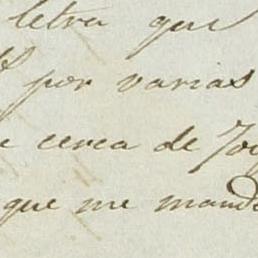 letra que
por varias
cerca de
que me mand